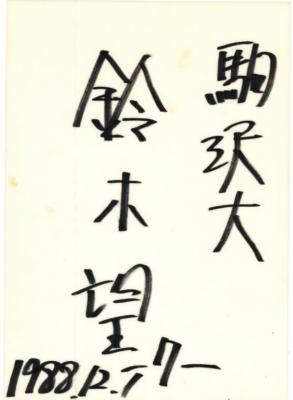 駒沢大
鈴木望
1988.12.